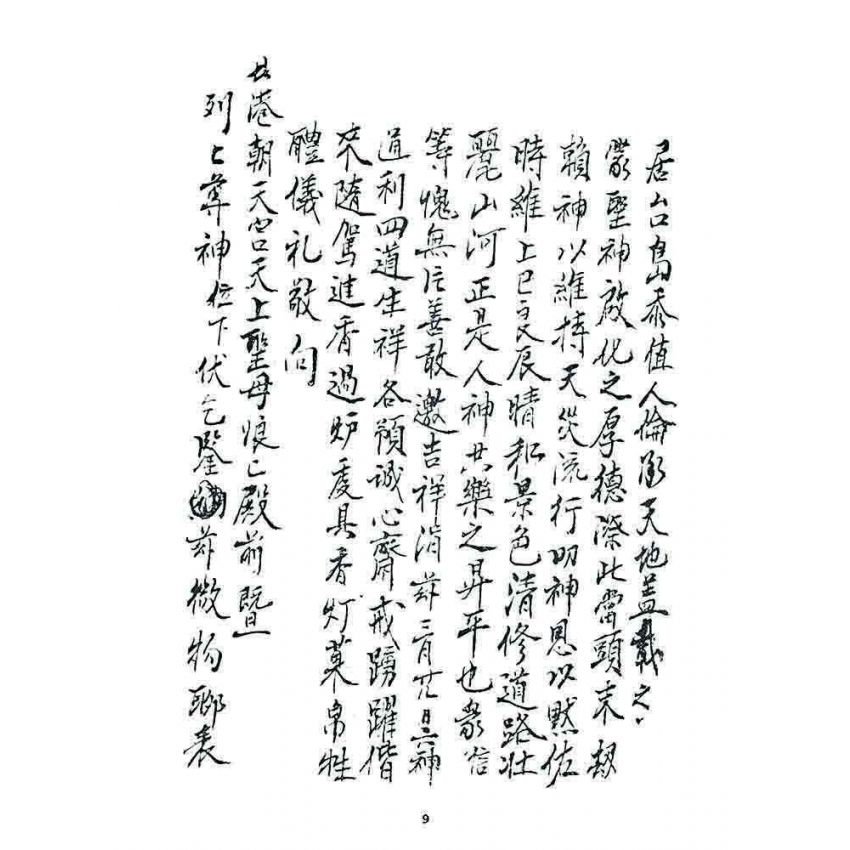 居台島忝值人倫承天地蓋載之
蒙聖神啟化之厚德際此當頭末劫
賴神以維持天災流行叨神恩以默佑
時維上巳良辰晴和景色清修道路壯
麗山河正是人神共樂之昇平也眾信
等愧無片善敢邀吉祥涓茲三月廿 神
道利四道生祥各預誠心齋戒踴躍偕
來隨駕進香過炉虔具香灯菓帛牲
醴儀礼敬向
北港朝天宮天上聖母娘上殿前暨
列上尊神位下伏乞鑒 茲微物聊表
9